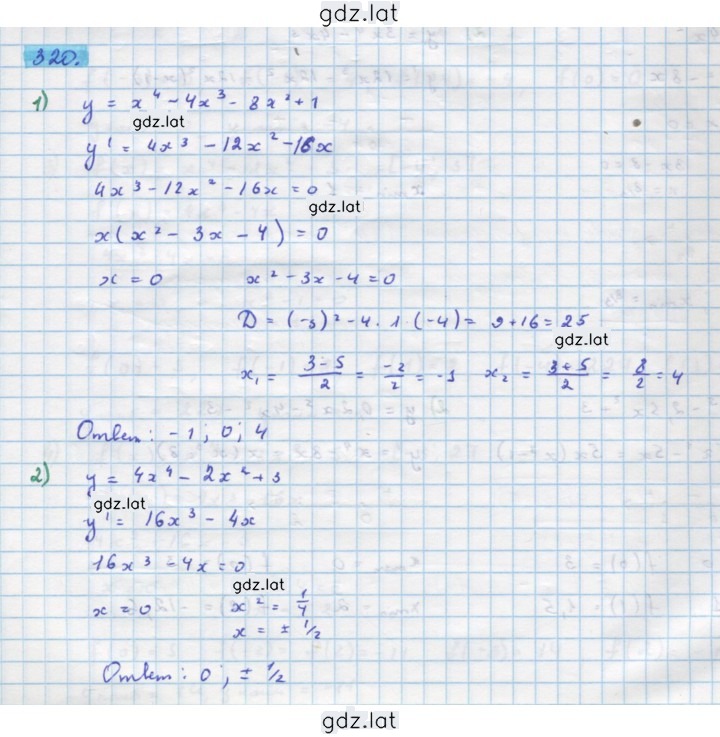 gdz.lat
320.
1) y = x⁴ - 4x³ - 8x² + 1
gdz.lat
y' = 4x³ - 12x² - 16x
4x³ - 12x² - 16x = 0
gdz.lat
x(x² - 3x - 4) = 0
x = 0 x² - 3x - 4 = 0
D = (-3)² - 4 · 1 · (-4) = 9 + 16 = 25
gdz.lat
x₁ = (3 - 5)/2 = -2/2 = -1 x₂ = (3 + 5)/2 = 8/2 = 4
Ответ: -1; 0; 4
2) y = 4x⁴ - 2x² + 3
gdz.lat
y' = 16x³ - 4x
16x³ - 4x = 0
gdz.lat
x = 0 x² = 1/4
x = ± 1/2
Ответ: 0; ± 1/2
gdz.lat